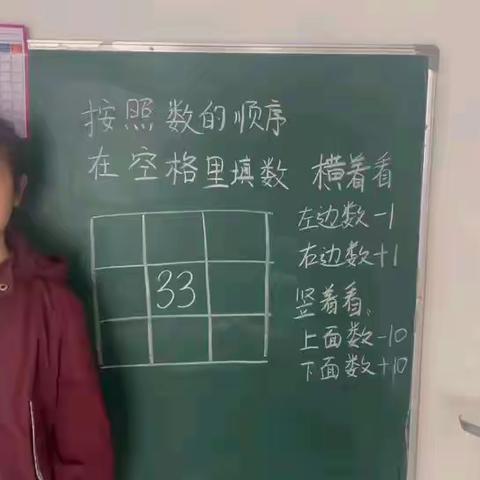 按照数的顺序
在空格里填数
33
横着看
左边数-1
右边数+1
竖着看、
上面数-10
下面数+10